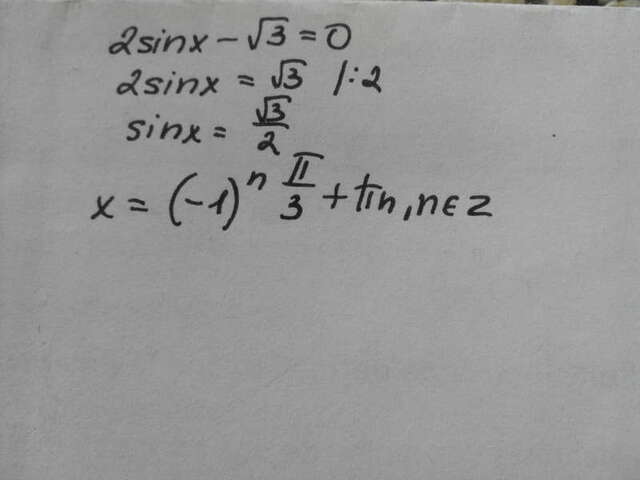 2sinx - √3 = 0
2sinx = √3 /:2
sinx = √3/2
x = (-1)^n π/3 + πn, n∈Z